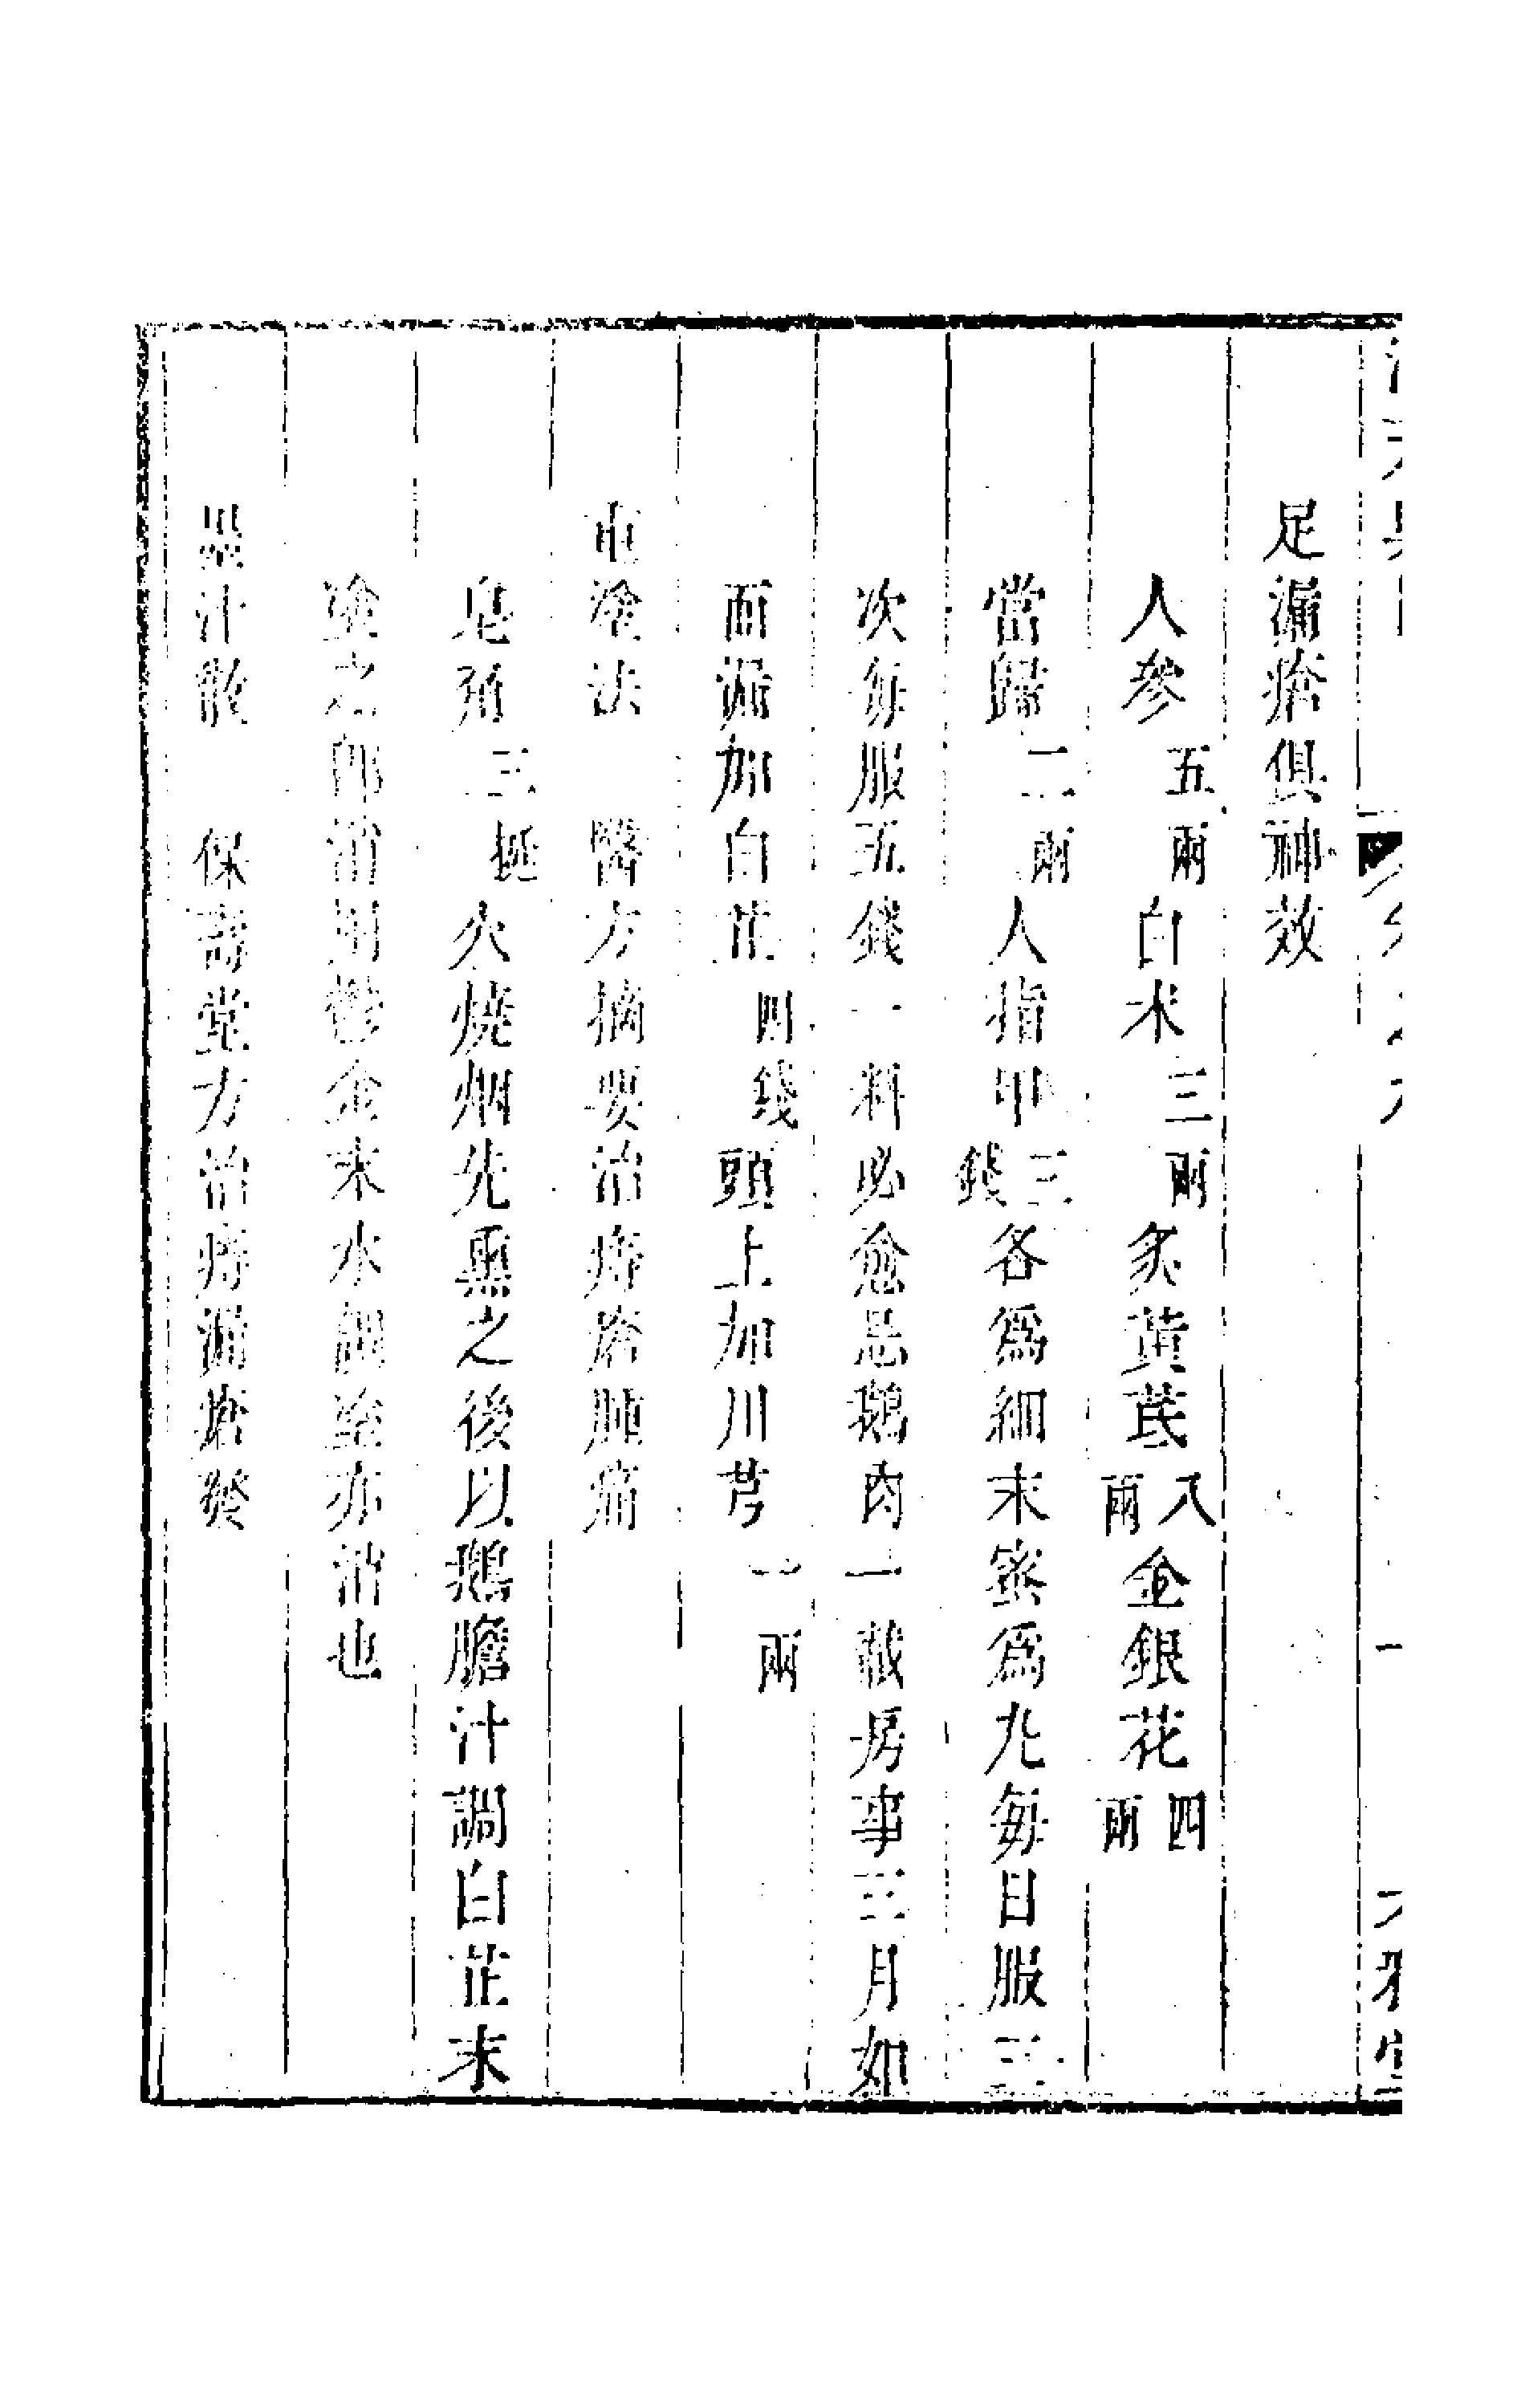 足漏瘡俱神效
人參五兩白朮三兩炙黃芪八兩金銀花四兩
當歸二兩人指甲三錢各爲細末蜜爲丸每日服三
次每服五錢一料必愈忌鵝肉一載房事三月如
面漏加白芷四錢頭上加川芎一兩
塗法 醫方摘要治痔瘡腫痛
皂角三挺火燒烟先熏之後以鵝膽汁調白芷末
塗之即消用鬱金末水調塗亦消也
汁散 保壽堂方治痔漏